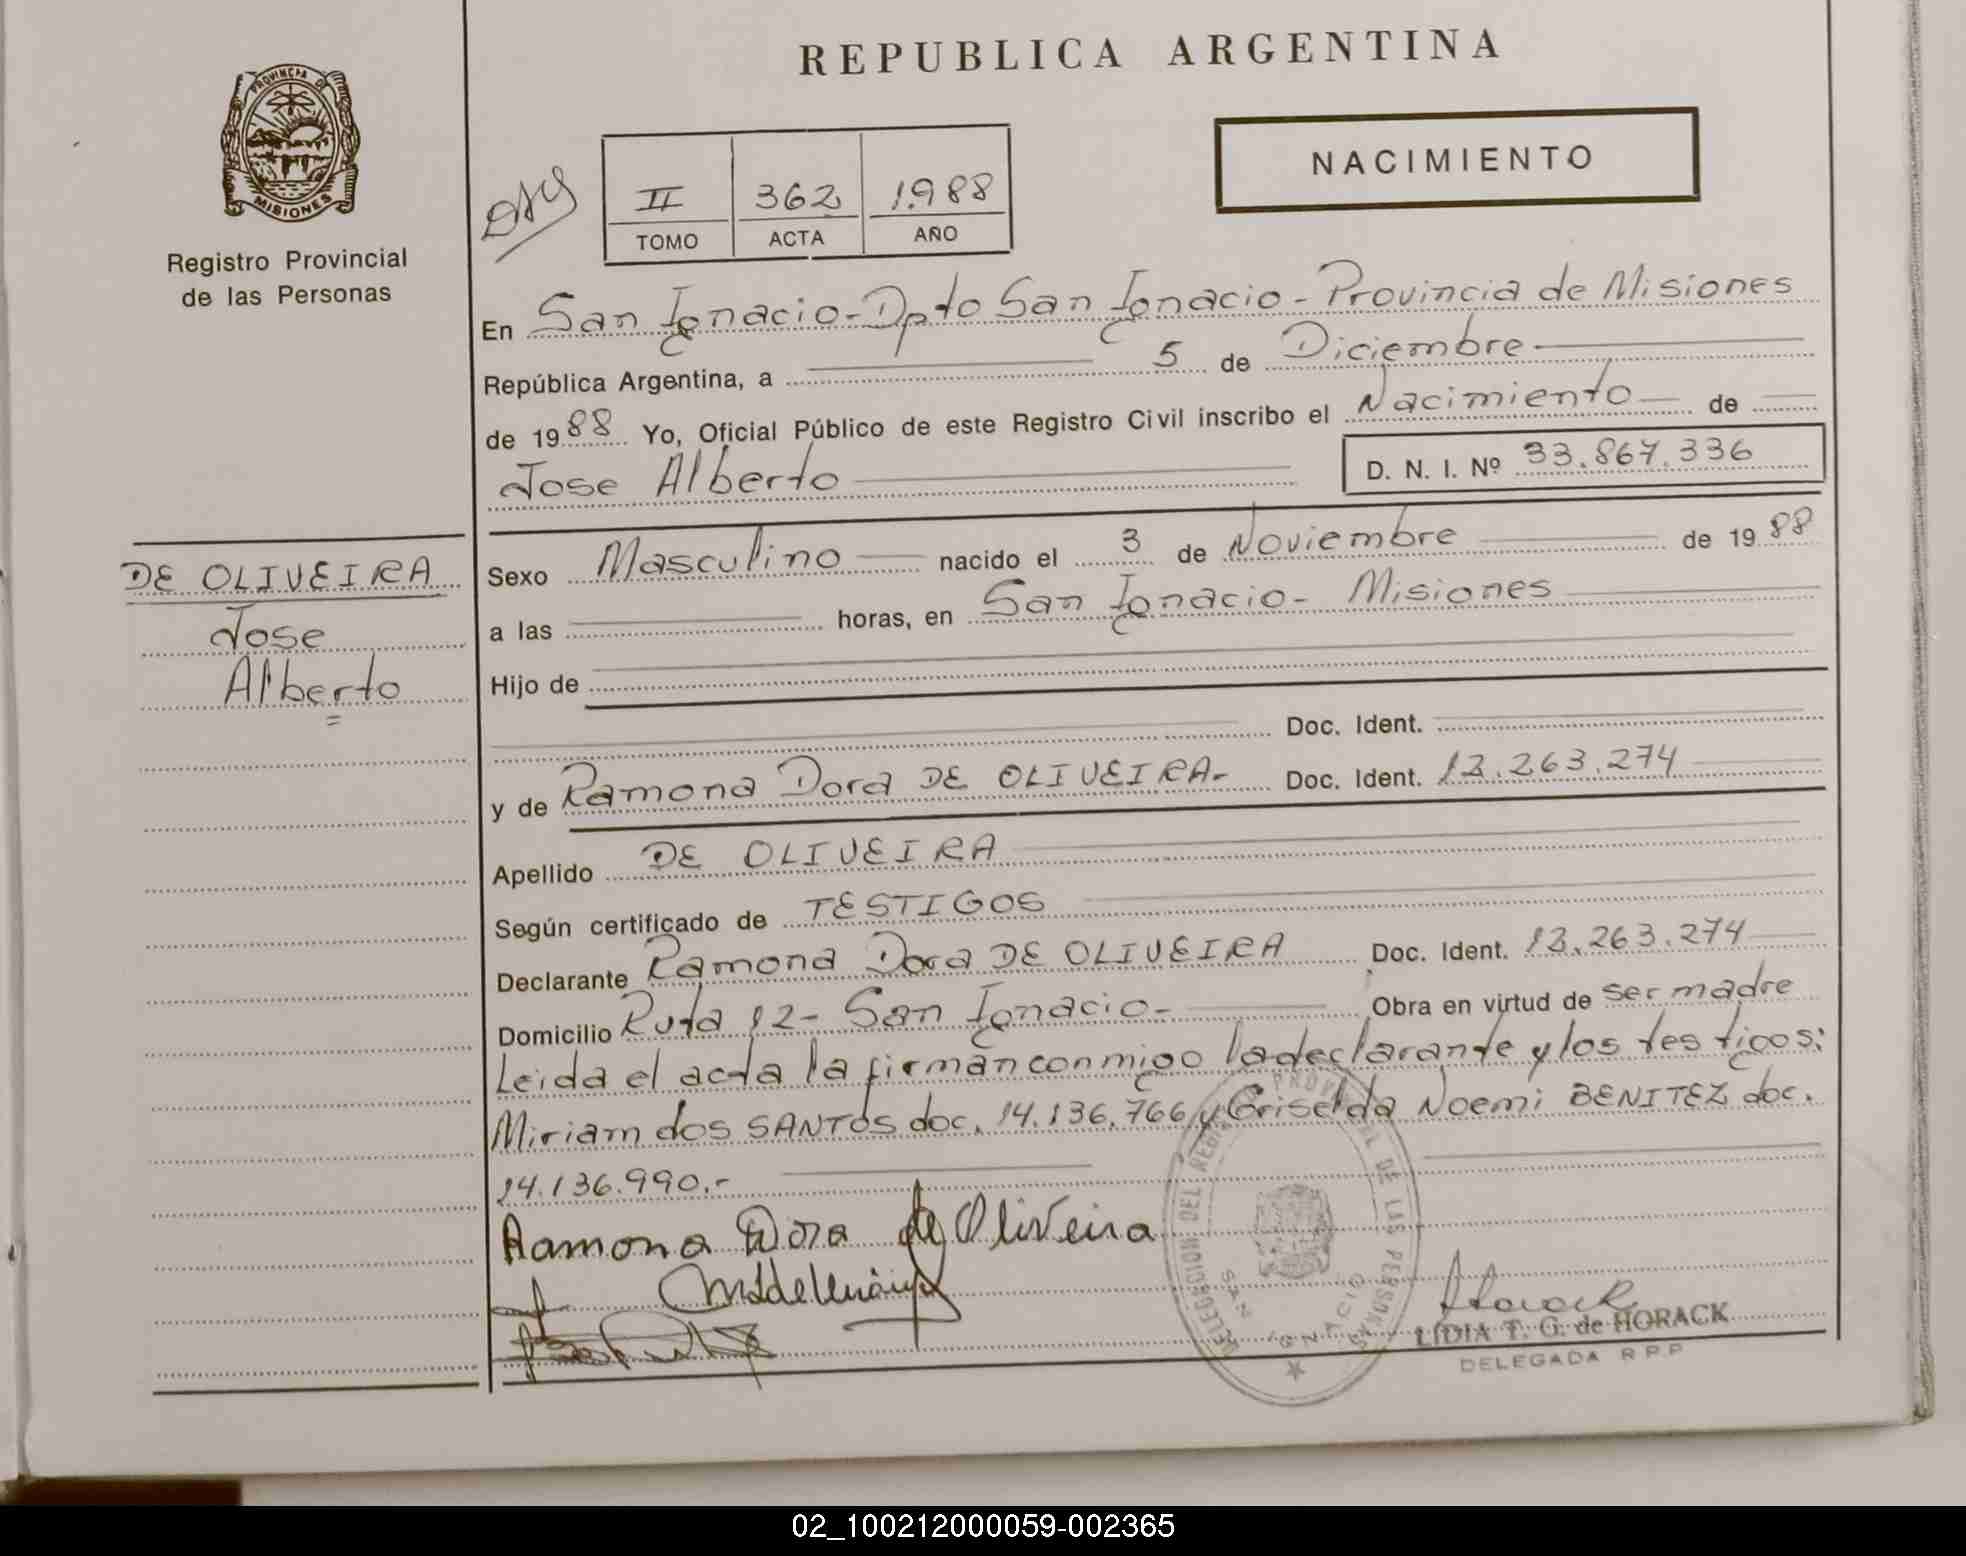 REPUBLICA ARGENTINA
PROVINCIA DE
MISIONES
Registro Provincial
de las Personas
NACIMIENTO
II 362 1.988
TOMO ACTA AÑO
En San Ignacio - Dpto San Ignacio - Provincia de Misiones
República Argentina, a 5 de Diciembre
de 1988 Yo, Oficial Público de este Registro Civil inscribo el Nacimiento de
Jose Alberto D. N. I. Nº 33.867.336
DE OLIVEIRA
Jose
Alberto
Sexo Masculino nacido el 3 de Noviembre de 1988
a las horas, en San Ignacio - Misiones
Hijo de
Doc. Ident.
y de Ramona Dora DE OLIVEIRA.- Doc. Ident. 12.263.274
Apellido DE OLIVEIRA
Según certificado de TESTIGOS
Declarante Ramona Dora DE OLIVEIRA Doc. Ident. 12.263.274
Domicilio Ruta 12 - San Ignacio - Obra en virtud de ser madre
Leida el acta la firman conmigo la declarante y los testigos:
Miriam dos SANTOS doc. 14.136.766 y Griselda Noemi BENITEZ doc.
14.136.990.-
Ramona Dora de Oliveira
DELEGACION DEL REGISTRO PROVINCIAL DE LAS PERSONAS
SAN IGNACIO
LIDIA T. G. de HORACK
DELEGADA R P P
02_100212000059-002365